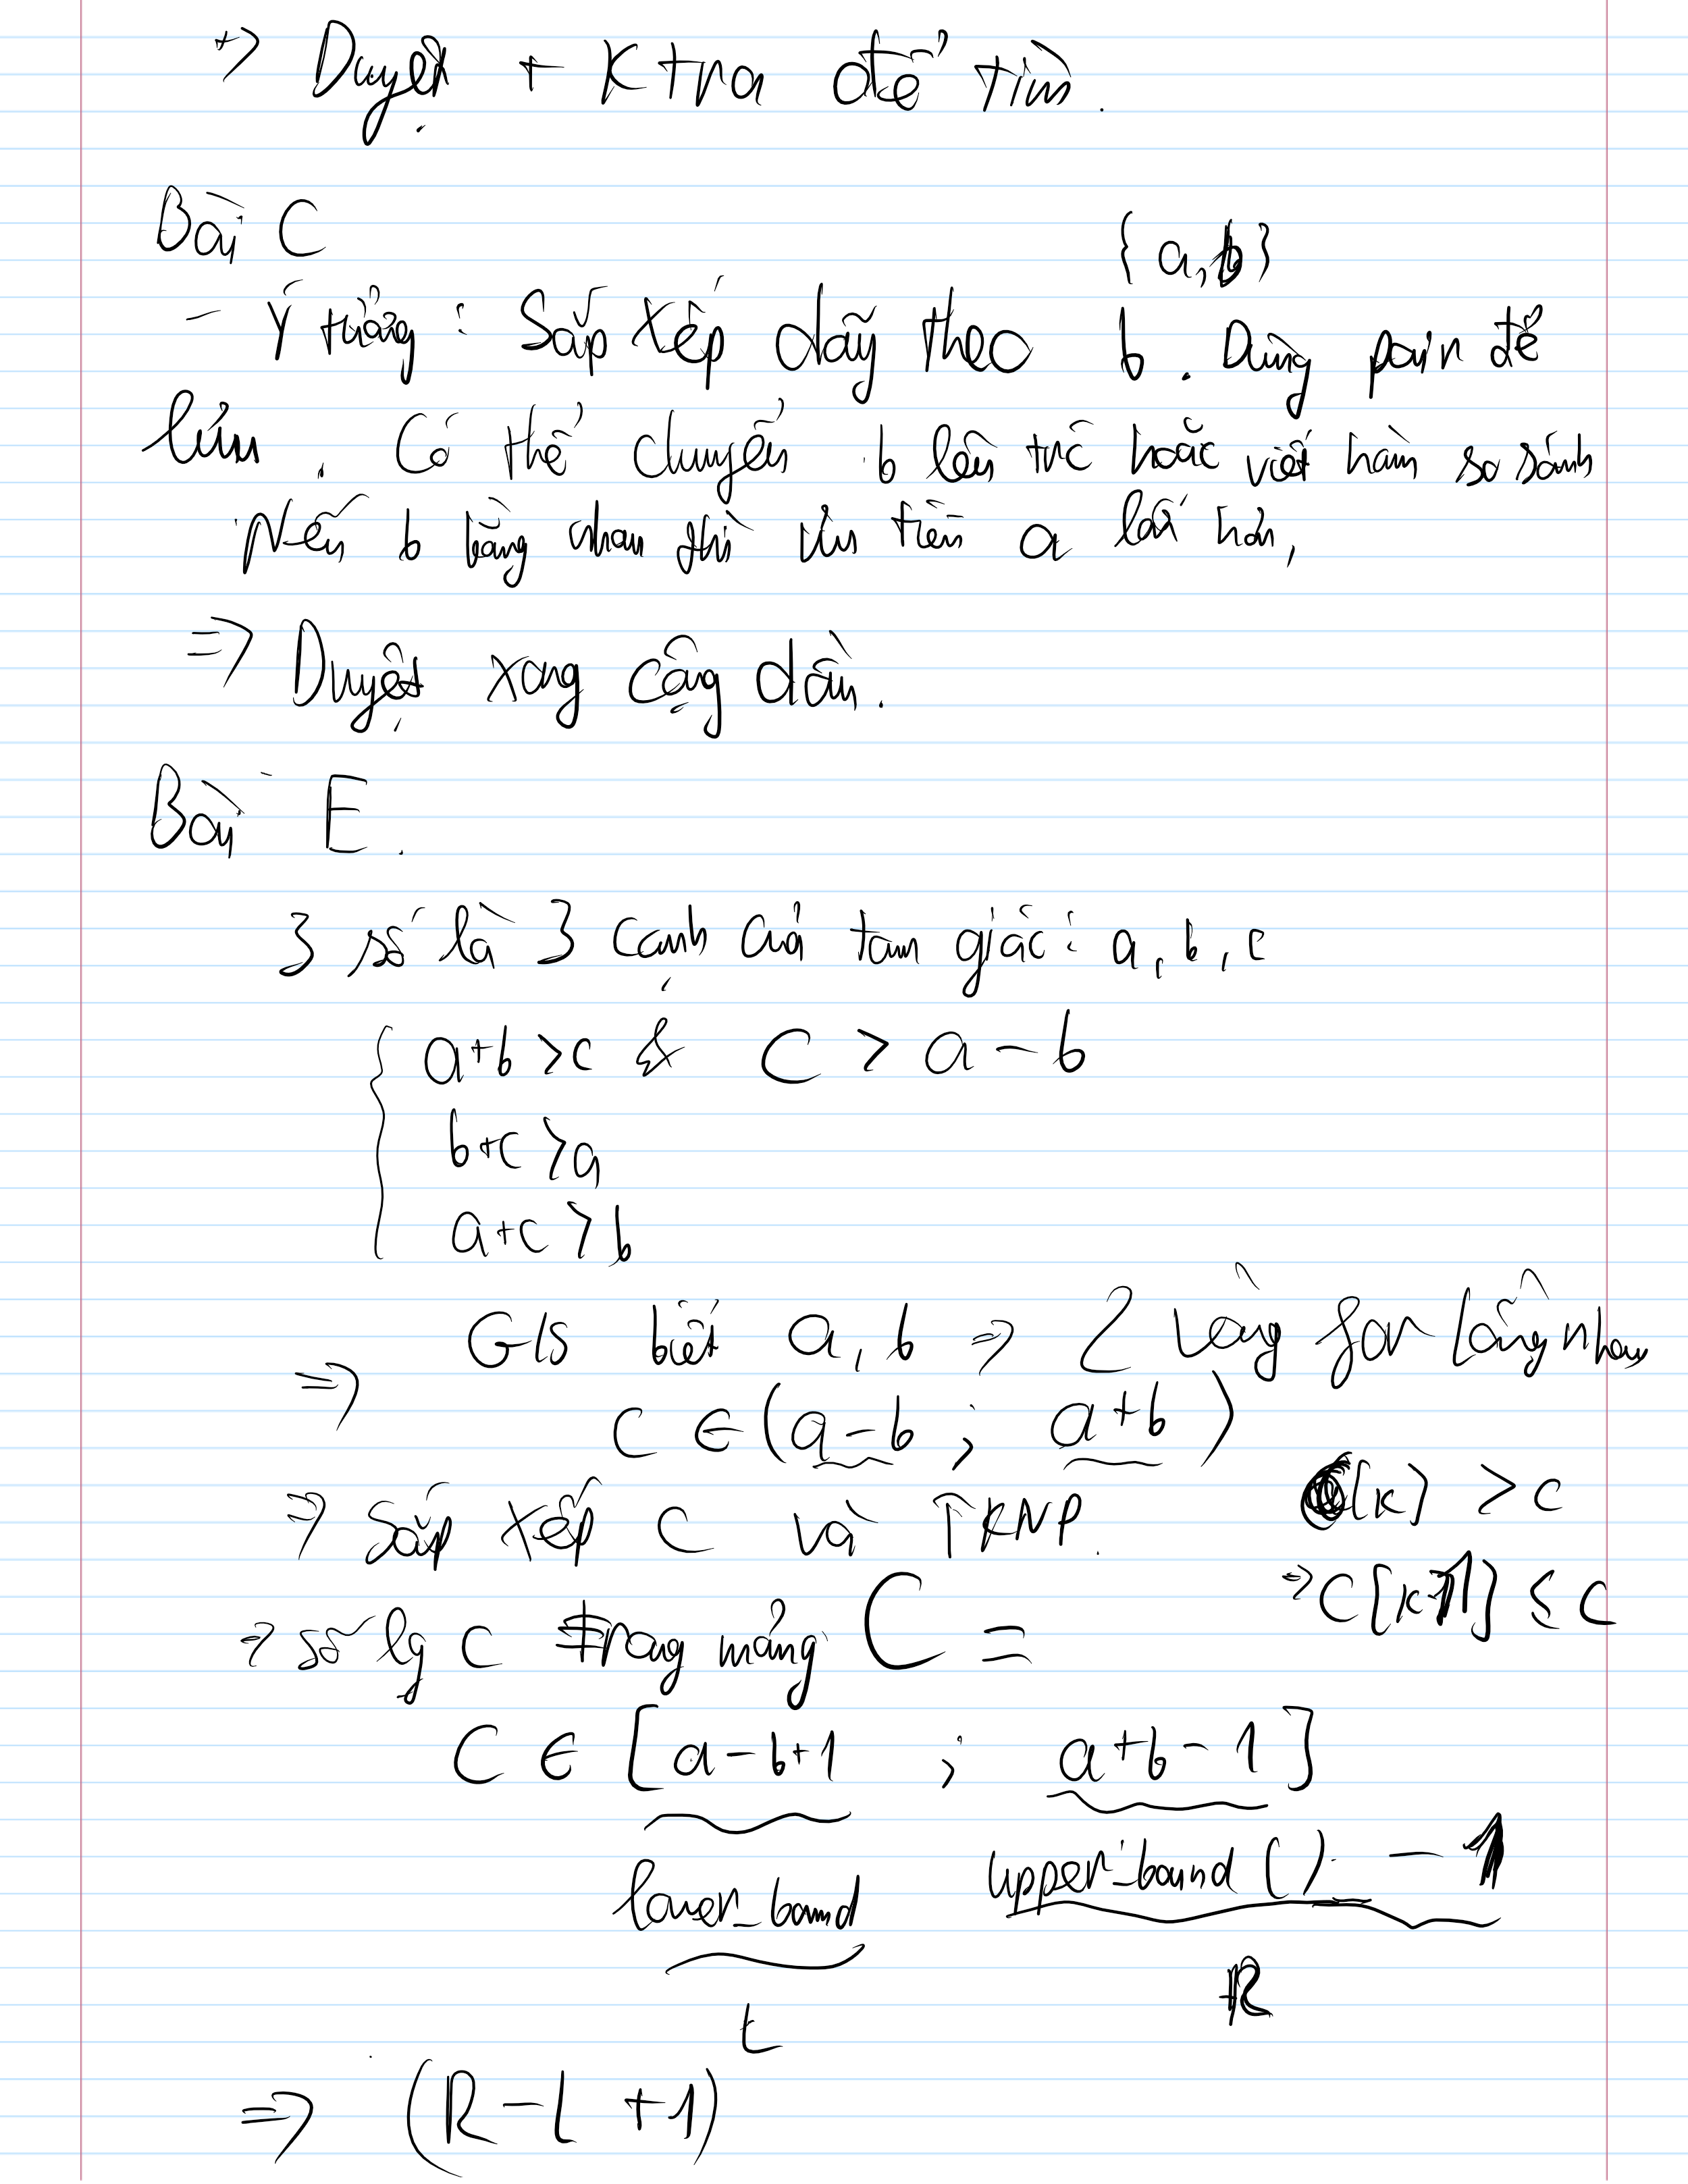 => Duyệt + Ktra để tìm.
Bài C
{a,b}
- Ý tưởng : Sắp xếp dãy theo b. Dùng pair để
lưu. Có thể chuyển b lên trc hoặc viết hàm so sánh
Nếu b bằng nhau thì ưu tiên a lớn hơn.
=> Duyệt xong cộng dần.
Bài E.
3 số là 3 cạnh của tam giác : a, b, c
a+b >c & c > a-b
b+c >a
a+c >b
G/s biết a, b => 2 vòng for lồng nhau
=> c ∈ (a-b ; a+b)
=> Sắp xếp C và TKNP.
[k] > c
=> C[k-1] ≤ c
=> số lg c trong mảng C =
C ∈ [a-b+1 ; a+b-1]
lower_bound upper_bound () - 1
L R
=> (R-L+1)